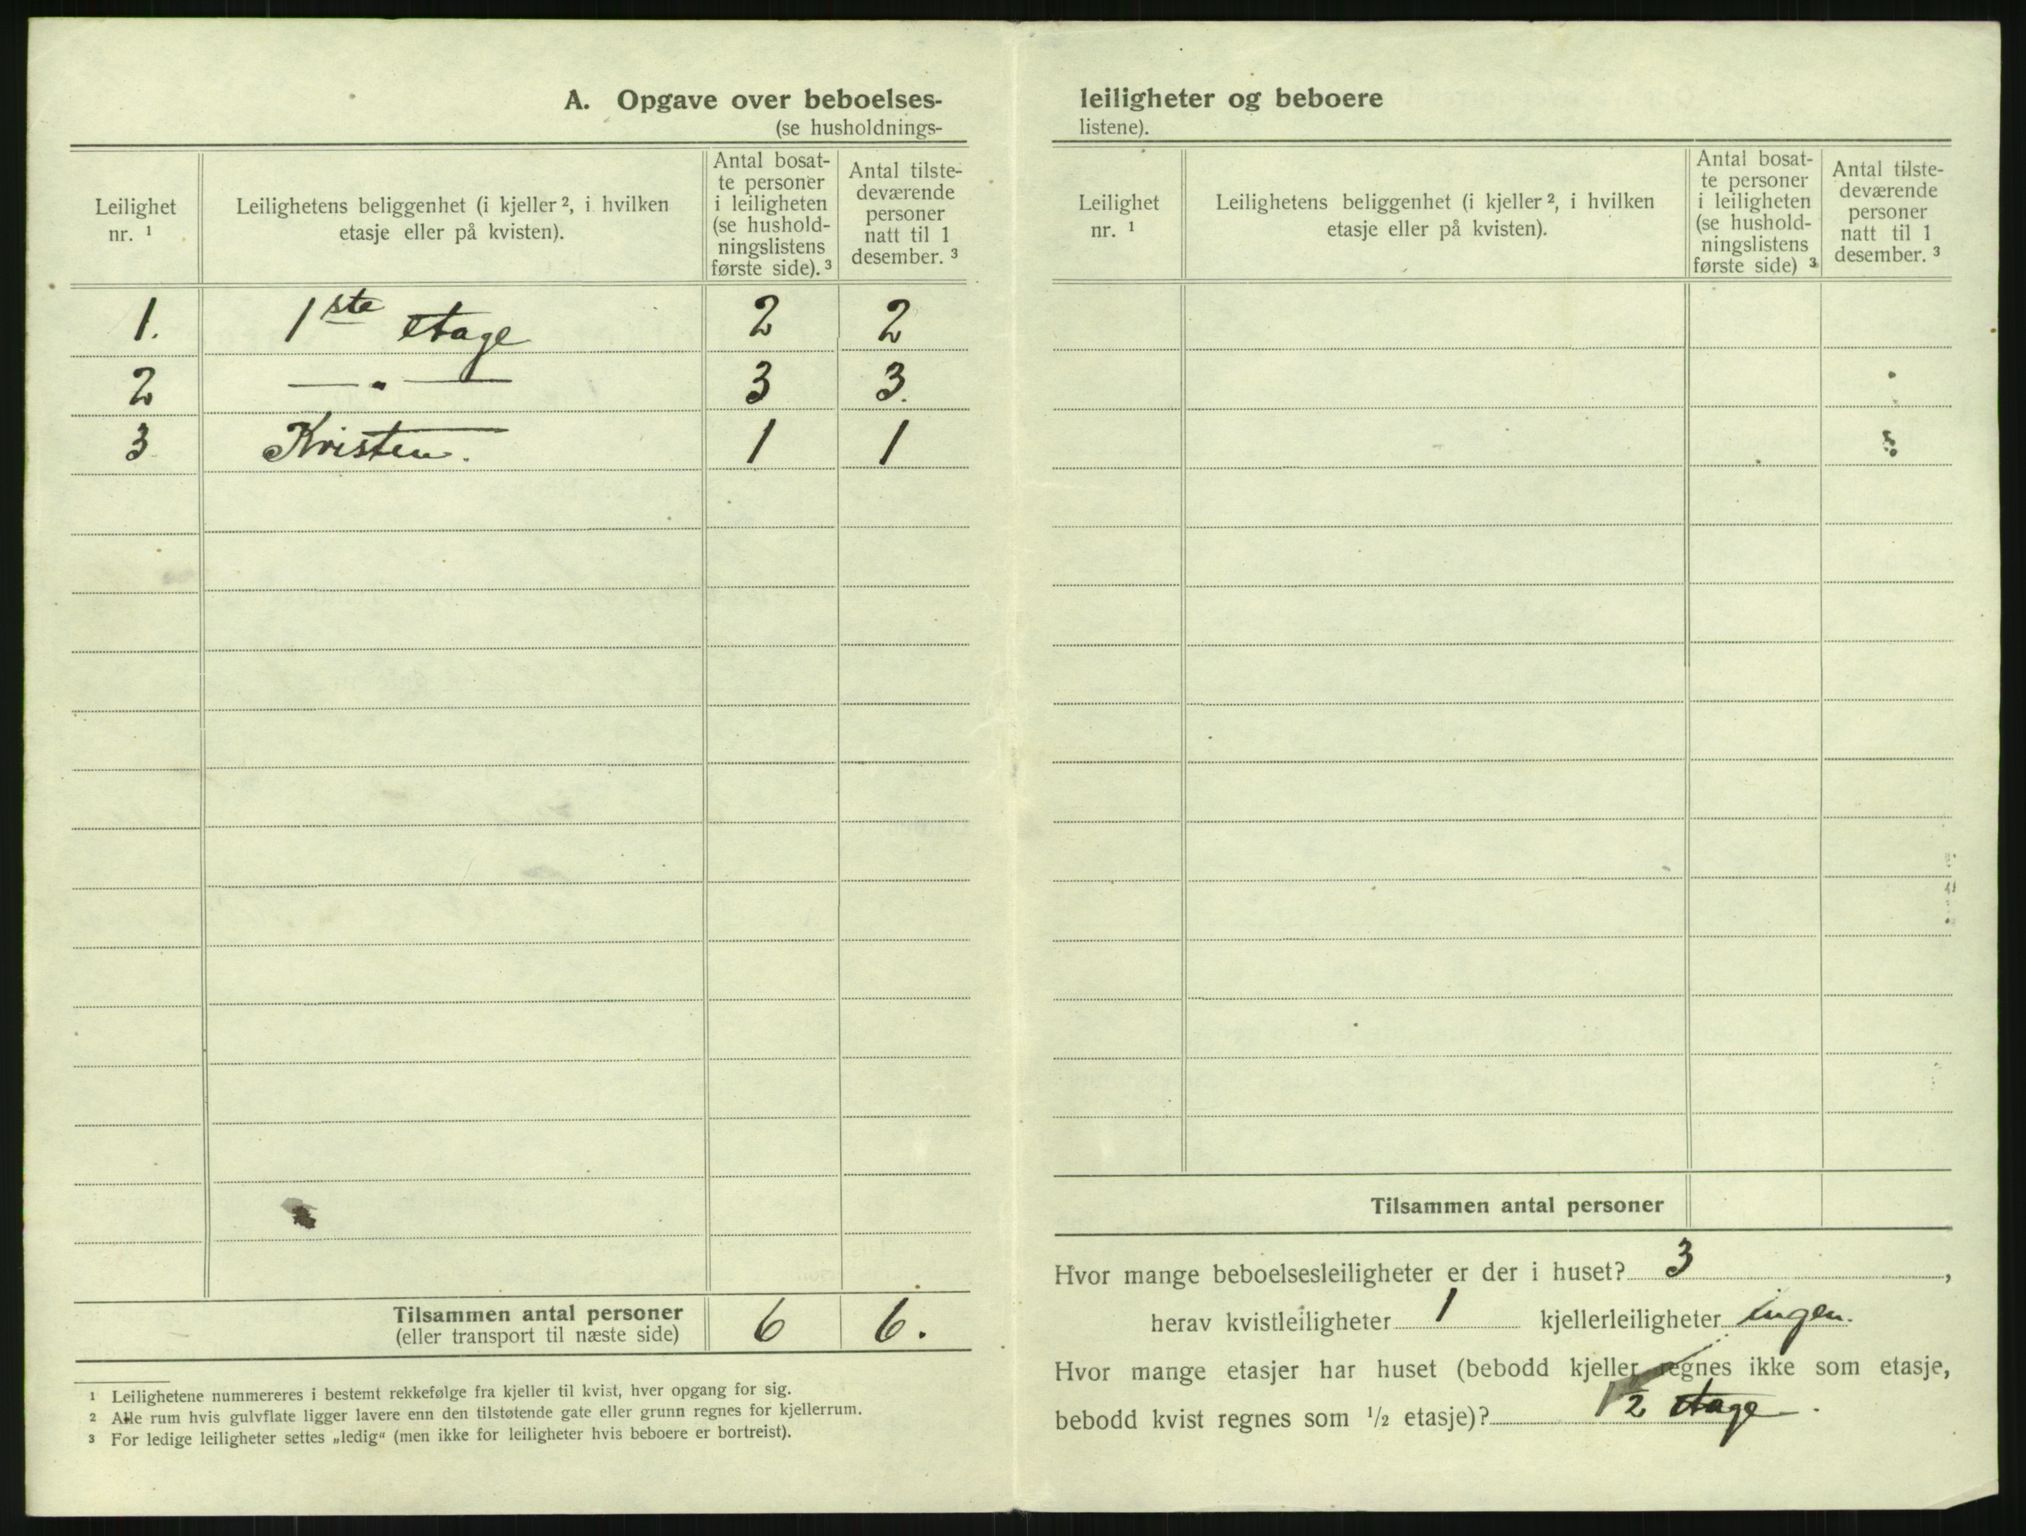 A. Opgave over beboelses-
(se husholdnings-
Leilighet
nr. ¹
Leilighetens beliggenhet (i kjeller ², i hvilken
etasje eller på kvisten).
Antal bosat-
te personer
i leiligheten
(se hushold-
ningslistens
første side). ³
Antal tilste-
deværende
personer
natt til 1
desember. ³
1. 1ste etage 2 2
2 — „ — 3 3.
3 Kvisten. 1 1
Tilsammen antal personer
(eller transport til næste side)
6 6.
¹ Leilighetene nummereres i bestemt rekkefølge fra kjeller til kvist, hver opgang for sig.
² Alle rum hvis gulvflate ligger lavere enn den tilstøtende gate eller grunn regnes for kjellerrum.
³ For ledige leiligheter settes „ledig“ (men ikke for leiligheter hvis beboere er bortreist).
leiligheter og beboere
listene).
Leilighet
nr. ¹
Leilighetens beliggenhet (i kjeller ², i hvilken
etasje eller på kvisten).
Antal bosat-
te personer
i leiligheten
(se hushold-
ningslistens
første side) ³
Antal tilste-
deværende
personer
natt til 1
desember. ³
Tilsammen antal personer
Hvor mange beboelsesleiligheter er der i huset? 3,
herav kvistleiligheter 1 kjellerleiligheter ingen.
Hvor mange etasjer har huset (bebodd kjeller regnes ikke som etasje,
bebodd kvist regnes som ½ etasje)? 1½ etage.